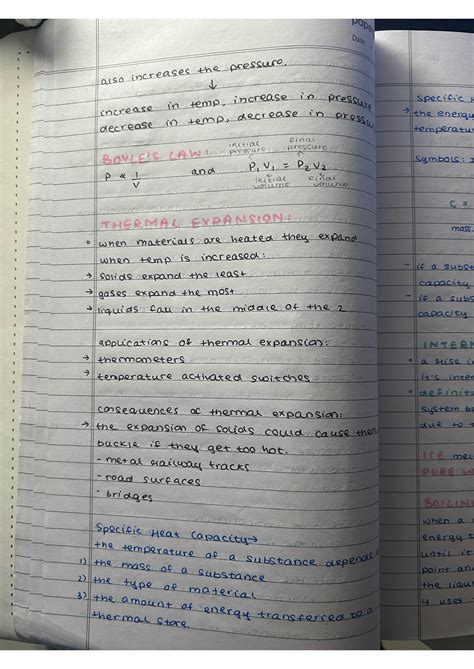 paper
Date:
also increases the pressure.
↓
increase in temp, increase in pressure
decrease in temp, decrease in pressu
BOYLE'S LAW:
initial pressure
final pressure
P ∝ 1/V and P₁V₁ = P₂V₂
initial volume
final volume
THERMAL EXPANSION:
• when materials are heated they expand
when temp is increased:
→ solids expand the least
→ gases expand the most
→ liquids fall in the middle of the 2
applications of thermal expansion:
→ thermometers
→ temperature activated switches
consequences of thermal expansion:
→ the expansion of solids could cause them
buckle if they get too hot.
- metal railway tracks
- road surfaces
- bridges
Specific Heat Capacity→
the temperature of a substance depends
1) the mass of a substance
2) the type of material
3) the amount of energy transferred to a
thermal store.
specific H
→ the energy
temperatu
symbols:
C =
mass.
- if a subst
capacity
- if a subs
capacity
INTERN
• a rise in
it's inte
• definiti
system b
due to t
ICE mel
PURE W
BOILIN
when a
energy t
until it
point an
the liqui
it uses